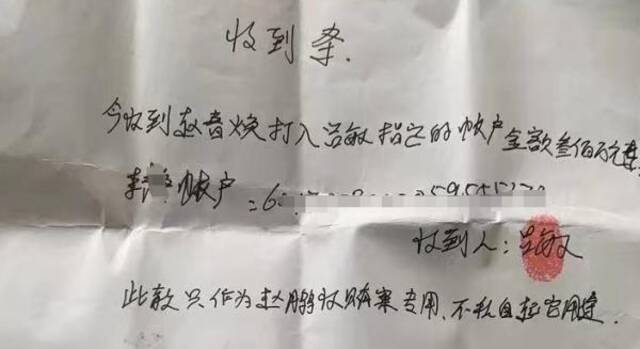 收到条.
今收到赵春焕打入吕敏指定的帐户金额叁佰万元整
帐户:6
收到人:吕敏
此款只作为赵鹏收贿案专用、不私自起它用途.